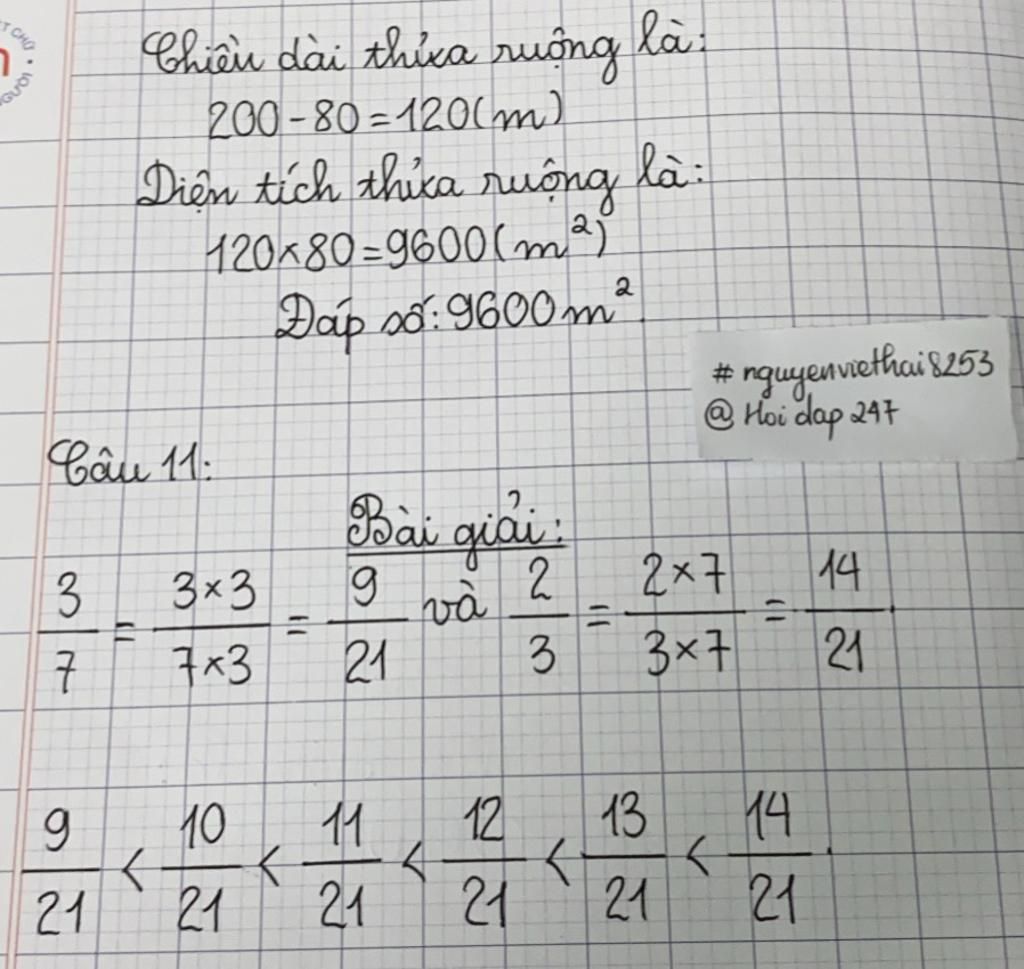 T CHỮ
NGƯỜI
Chiều dài thửa ruộng là:
200 - 80 = 120 (m)
Diện tích thửa ruộng là:
120 × 80 = 9600 (m²)
Đáp số: 9600 m².
# nguyenviethai8253
@ Hoi dap 247
Câu 11:
Bài giải:
3/7 = 3×3/7×3 = 9/21 và 2/3 = 2×7/3×7 = 14/21.
9/21 < 10/21 < 11/21 < 12/21 < 13/21 < 14/21.